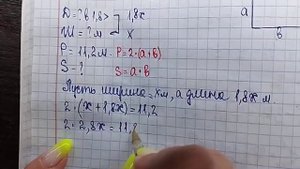 Д = ? в 1,8 > 1,8x
a
Ш = ? м x
P = 11,2 м. P = 2·(a+в)
в
S = ? S = a·в
Пусть ширина = xм, а длина 1,8x м.
2·(x+1,8x) = 11,2
2·2,8x = 11,2